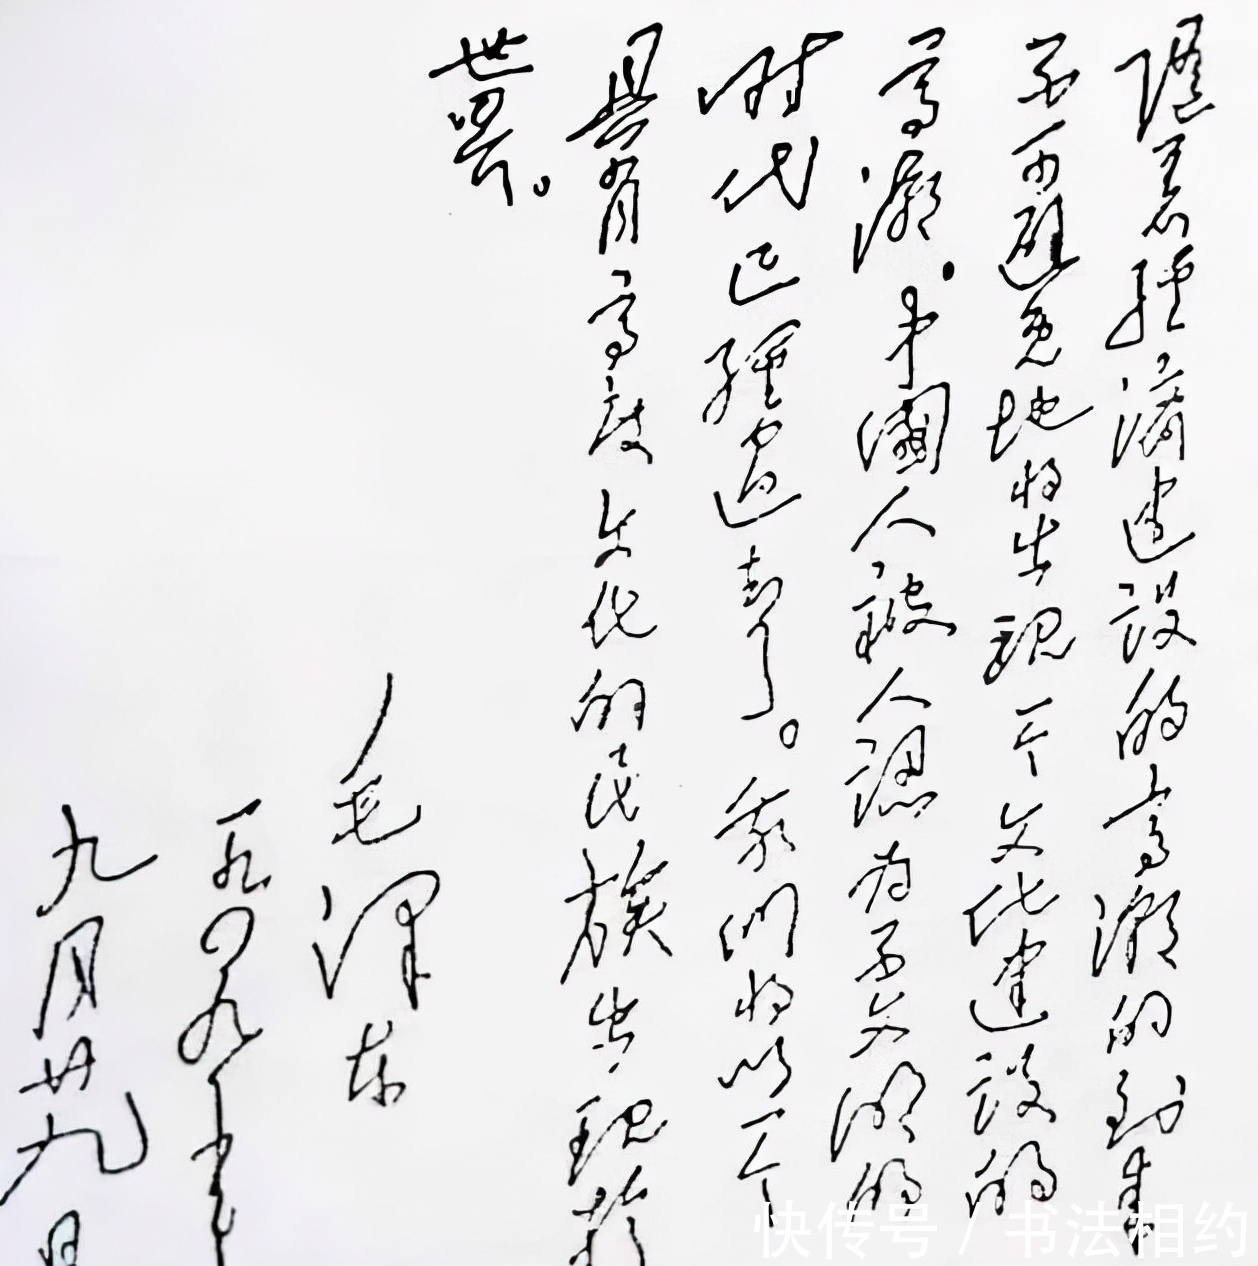 随着经济建设的高潮的到来
不可避免地将出现一个文化建设的
高潮.中國人被人認为不文明的
时代已經過去了。我們将以一个
具有高度文化的民族出现於
世界。
毛泽东
一九四九年
九月廿九日
快传号 / 书法相约